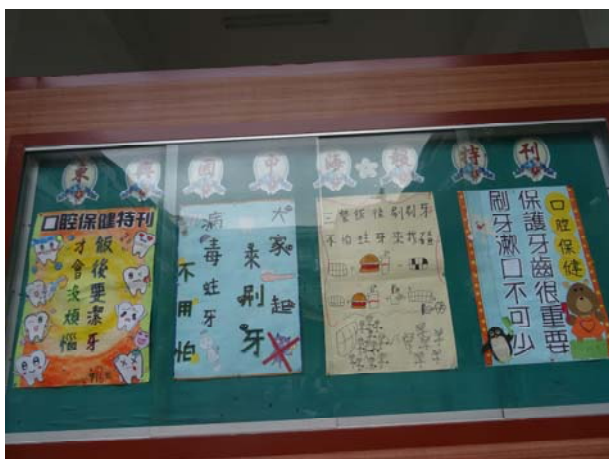 東興國中海報特刊
口腔保健特刊
飯後要潔牙
才會沒煩惱
大家起
來刷牙
病毒蛀牙
不用怕
三餐飯後刷刷牙
不怕蛀牙來找
口腔保健
保護牙齒很重要
刷牙漱口不可少